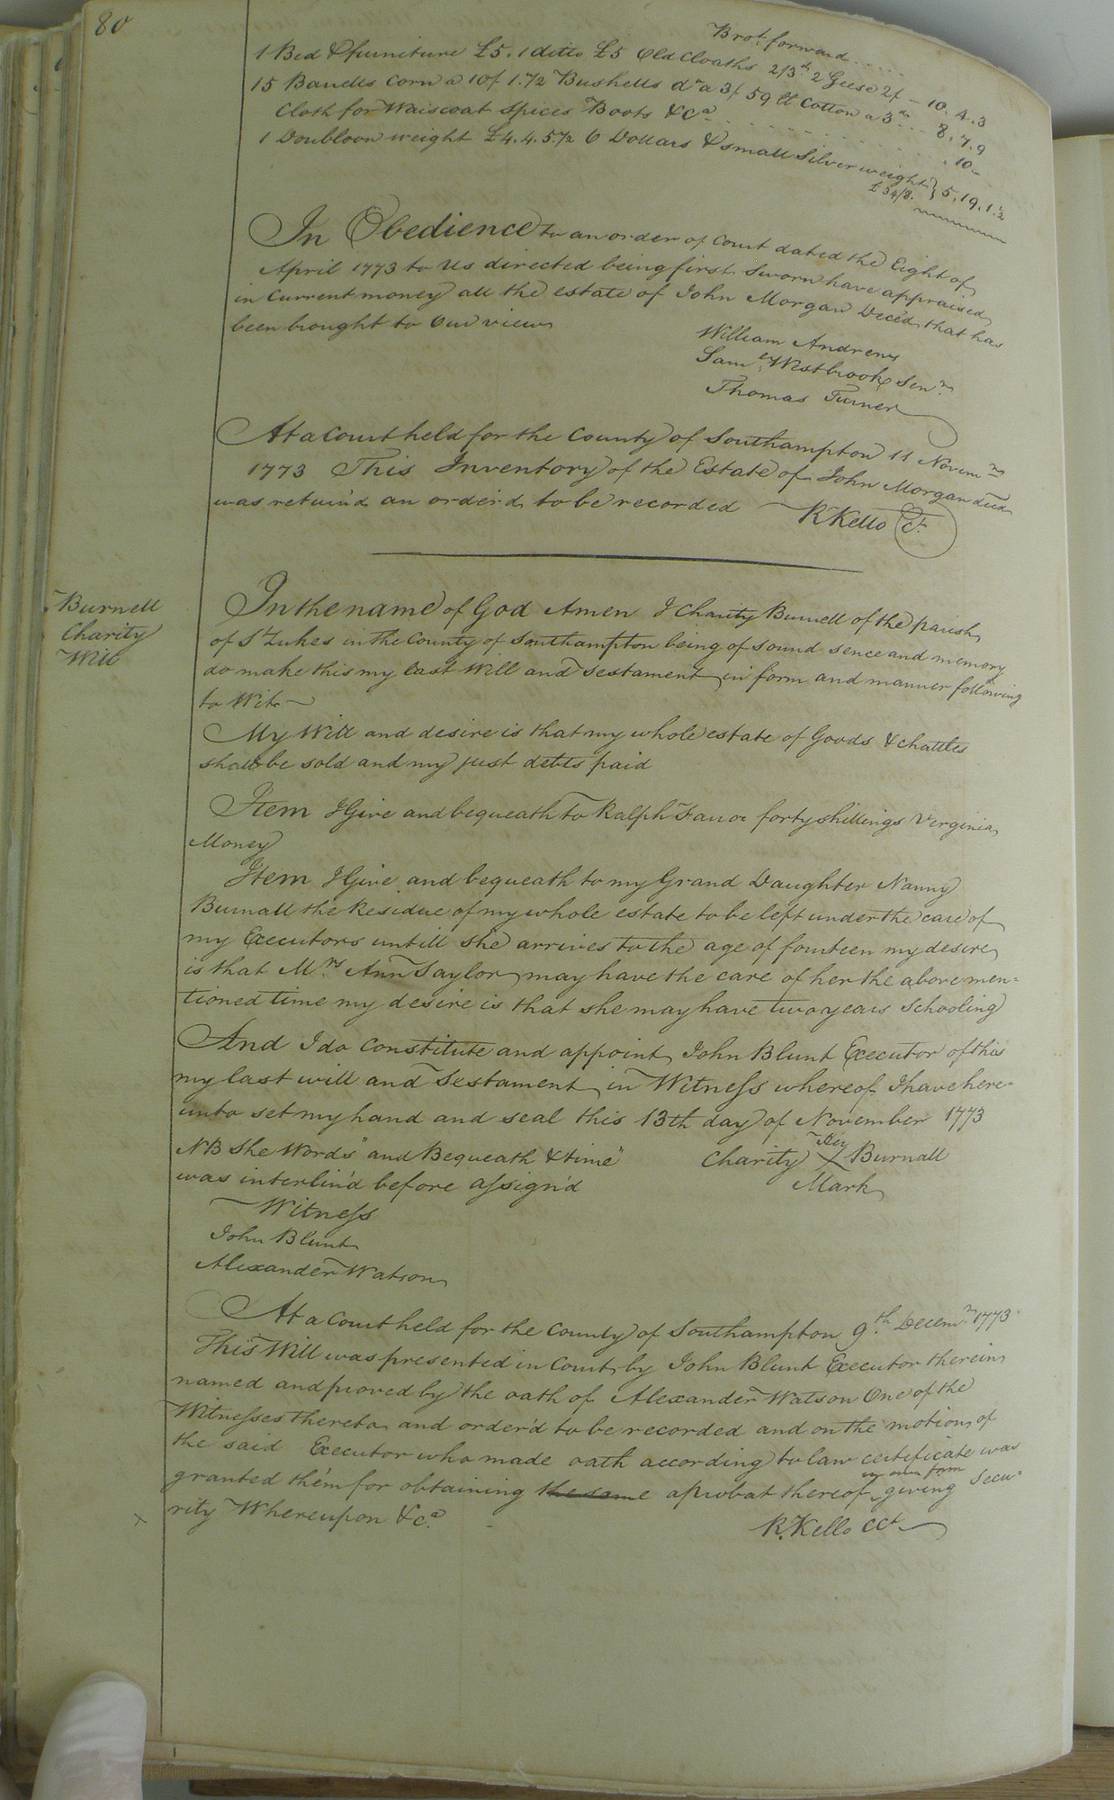 80
Bro.t forward
1 Bed & furniture £5. 1 ditto £5 Old Cloaths 2/3d 2 Geese 2/ - 10. 4. 3
15 Barrells Corn a 10/ 1.1/2 Bushells do a 3/ 59 lt Cotton a 3d 8. 7. 9
Cloth for Waiscoat Spices Boots & Ca . 10 -
1 Doubloon weight £4.4.5 1/2 6 Dollars & small Silver weight } 5. 19. 1 1/2
£34/8.
In Obedience to an order of Court dated the Eight of
April 1773 to us directed being first Sworn have appraised
in Current money all the estate of John Morgan Deced, that has
been brought to Our view
William Andrews
Saml Westbrook Senr
Thomas Turner
At a Court held for the County of Southampton 11 Novemr
1773 This Inventory of the Estate of John Morgan deed
was return'd an order'd to be recorded R Kello Ct
Burnell
Charity
Will
In the name of God Amen I Charity Burnell of the parish
of St Lukes in the County of Southampton being of sound sence and memory
do make this my last Will and Testament in form and manner following
to Wit
My Will and desire is that my whole estate of Goods & chattles
shall be sold and my just debts paid
Item I Give and bequeath to Ralph forty shillings Virginia
Money
Item I Give and bequeath to my Grand Daughter Nanny
Burnall the Residue of my whole estate to be left under the care of
my Executors untill she arrives to the age of fourteen my desire
is that Mrs Ann Taylor may have the care of her the above men-
tioned time my desire is that she may have two years Schooling
And I do Constitute and appoint John Blunt Executor of this
my last will and Testament in Witness whereof I have here-
unto set my hand and seal this 13th day of November 1773
NB The Words "and Bequeath & time"
was interlin'd before assign'd
her
Charity X Burnall
Mark
Witness
John Blunt
Alexander Watson
At a Court held for the County of Southampton 9th Decemr 1773
This Will was presented in Court by John Blunt Executor therein
named and proved by the oath of Alexander Watson One of the
Witnesses thereto and order'd to be recorded and on the motion of
the said Executor who made oath according to law certificate was
granted them for obtaining the same a probat thereof in due form giving Secu-
rity Whereupon & Ca
R. Kello CCt